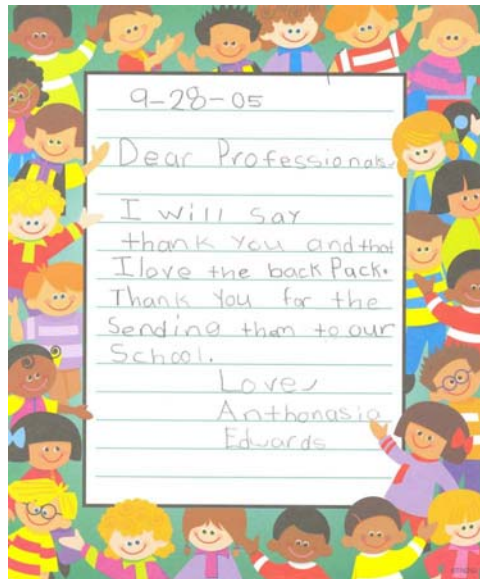 9-28-05
Dear Professionals,
I will say
thank you and that
I love the back Pack.
Thank You for the
Sending them to our
School.
Love,
Anthonasia
Edwards